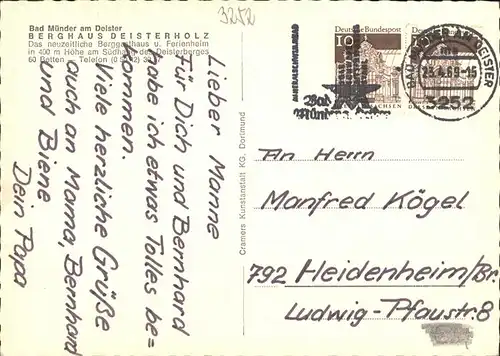 3252
Bad Münder am Deister
BERGHAUS DEISTERHOLZ
Das neuzeitliche Berggasthaus u. Ferienheim
in 400 m Höhe am Südhang des Deisterberges
60 Betten — Telefon
Lieber Manne
Für Dich und Bernhard
habe ich etwas Tolles be=
kommen.
Viele herzliche Grüße
auch an Mama, Bernhard
und Biene
Dein Papa
Cramers Kunstanstalt KG. Dortmund
Deutsche Bundespost
10
Deutsche
SACHSEN
Bad
Münder
23.4.69-15
3252
An Herrn
Manfred Kögel
792 Heidenheim/Br.
Ludwig-Pfaustr. 8